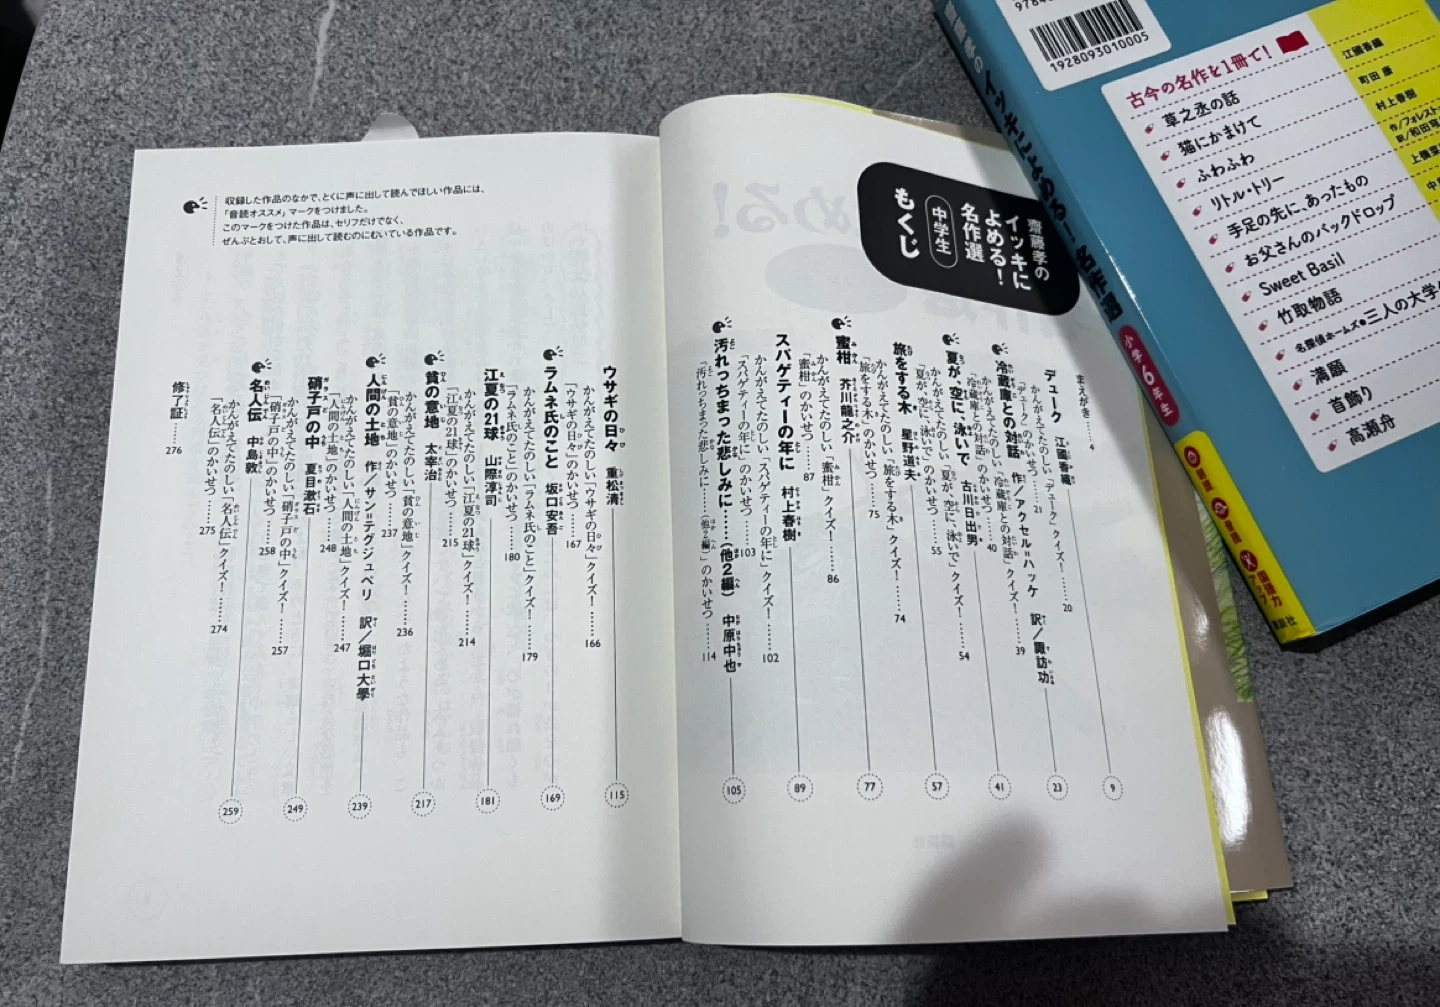 齋藤孝の
イッキに
よめる!
名作選
中学生
もくじ
まえがき……4
デューク 江國香織 9
かんがえてたのしい「デューク」クイズ!……20
「デューク」のかいせつ……21
冷蔵庫との対話 作/アクセル=ハッケ 訳/諏訪功 23
かんがえてたのしい「冷蔵庫との対話」クイズ!……39
「冷蔵庫との対話」のかいせつ……40
夏が、空に、泳いで 古川日出男 41
かんがえてたのしい「夏が、空に、泳いで」クイズ!……54
「夏が、空に、泳いで」のかいせつ……55
旅をする木 星野道夫 57
かんがえてたのしい「旅をする木」クイズ!……74
「旅をする木」のかいせつ……75
蜜柑 芥川龍之介 77
かんがえてたのしい「蜜柑」クイズ!……86
「蜜柑」のかいせつ……87
スパゲティーの年に 村上春樹 89
かんがえてたのしい「スパゲティーの年に」クイズ!……102
「スパゲティーの年に」のかいせつ……103
汚れっちまった悲しみに……(他2編) 中原中也 105
「汚れっちまった悲しみに……(他2編)」のかいせつ……114
ウサギの日々 重松清 115
かんがえてたのしい「ウサギの日々」クイズ!……166
「ウサギの日々」のかいせつ……167
ラムネ氏のこと 坂口安吾 169
かんがえてたのしい「ラムネ氏のこと」クイズ!……179
「ラムネ氏のこと」のかいせつ……180
江夏の21球 山際淳司 181
かんがえてたのしい「江夏の21球」クイズ!……214
「江夏の21球」のかいせつ……215
貧の意地 太宰治 217
かんがえてたのしい「貧の意地」クイズ!……236
「貧の意地」のかいせつ……237
人間の土地 作/サン=テグジュペリ 訳/堀口大學 239
かんがえてたのしい「人間の土地」クイズ!……247
「人間の土地」のかいせつ……248
硝子戸の中 夏目漱石 249
かんがえてたのしい「硝子戸の中」クイズ!……257
「硝子戸の中」のかいせつ……258
名人伝 中島敦 259
かんがえてたのしい「名人伝」クイズ!……274
「名人伝」のかいせつ……275
修了証……276
収録した作品のなかで、とくに声に出して読んでほしい作品には、
「音読オススメ」マークをつけました。
このマークをつけた作品は、セリフだけでなく、
ぜんぶとおして、声に出して読むのにむいている作品です。
1928093010005
古今の名作を1冊で!
草之丞の話 江國香織
猫にかまけて 町田康
ふわふわ 村上春樹
リトル・トリー
手足の先に、あったもの
お父さんのバックドロップ
Sweet Basil
竹取物語
名探偵ホームズ●三人の大学生
満願
首飾り
高瀬舟
イッキによめる!名作選 小学6年生
講談社